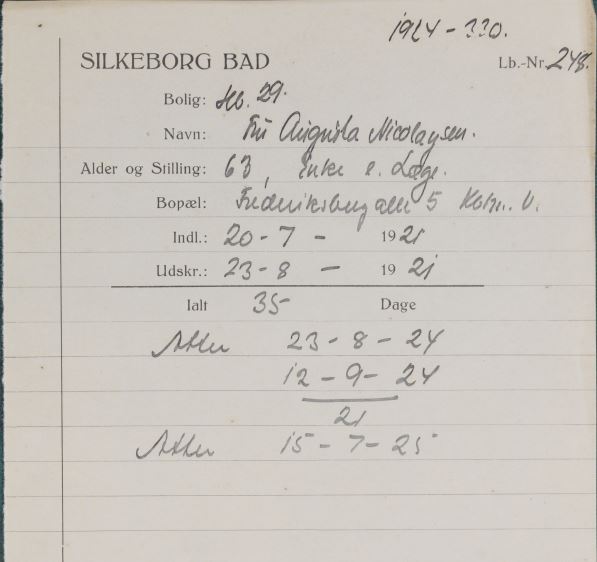 1924-330.
SILKEBORG BAD
Lb.-Nr. 248.
Bolig: Hb. 29.
Navn: Fru Augusta Nicolaysen.
Alder og Stilling: 63, Enke e. Læge.
Bopæl: Frederiksberg alle 5 Kbhn. V.
Indl.: 20-7 - 1921
Udskr.: 23-8 - 1921
Ialt 35 Dage
Atter 23-8-24
12-9-24
21
Atter 15-7-25